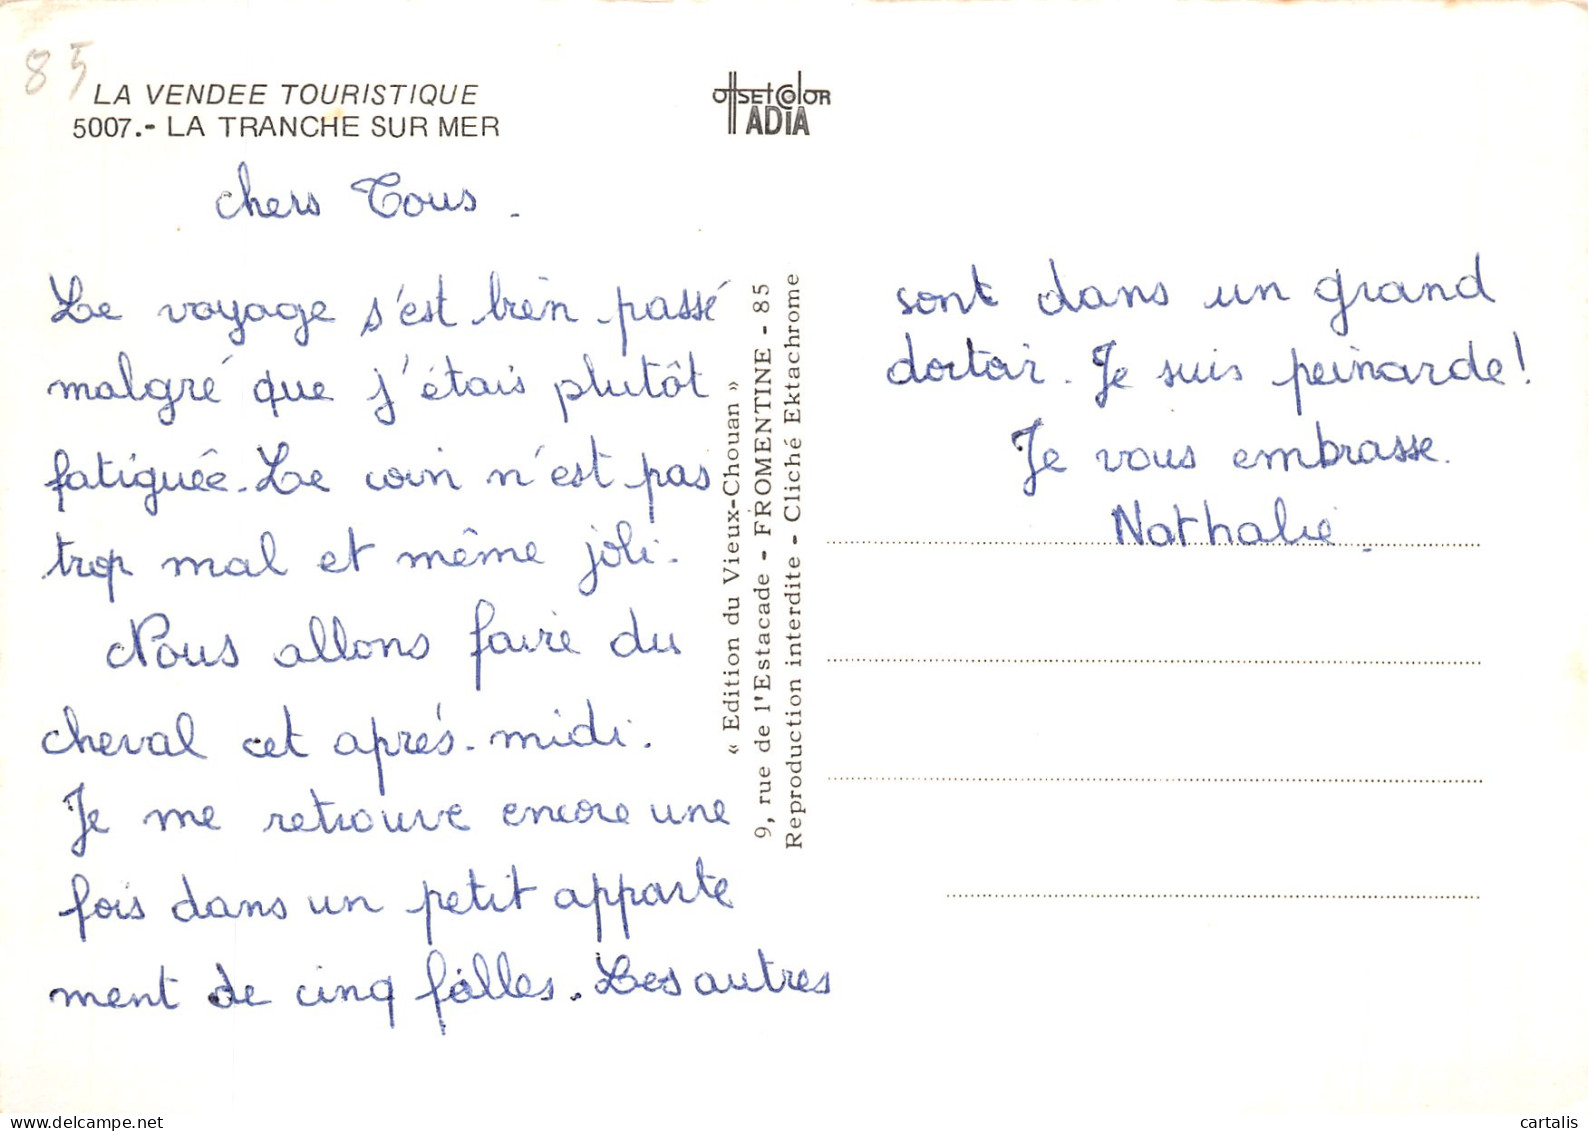 85
LA VENDEE TOURISTIQUE
5007.- LA TRANCHE SUR MER
offSETCOlOR
ADIA
chers Tous.
Le voyage s'est bien passé
malgré que j'étais plutôt
fatiguée. Le coin n'est pas
trop mal et même joli.
Nous allons faire du
cheval cet après-midi.
Je me retrouve encore une
fois dans un petit apparte
ment de cinq filles. Les autres
« Edition du Vieux-Chouan »
9, rue de l'Estacade - FROMENTINE - 85
Reproduction interdite - Cliché Ektachrome
sont dans un grand
dortoir. Je suis peinarde!
Je vous embrasse.
Nathalie.
cartalis
delcampe.net